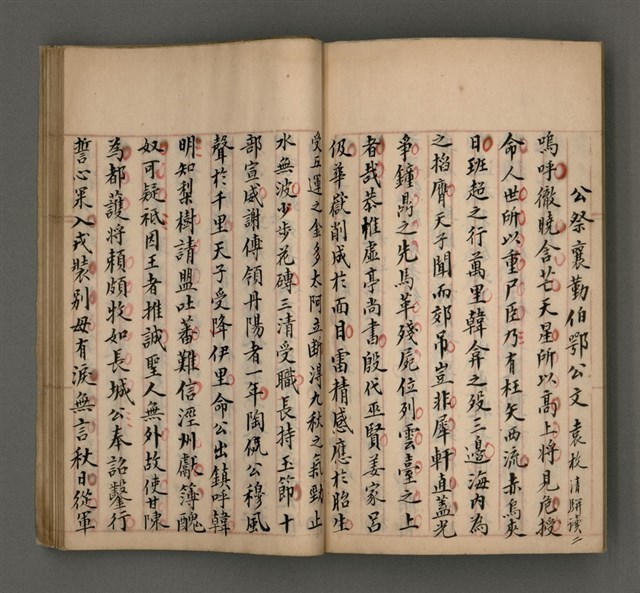 公祭襄勤伯鄂公文 袁枚 清駢讀二
嗚呼徹曉含芒天星所以高上將見危授
命人世所以重尸臣乃有枉矢西流赤烏夾
日班超之行萬里韓弇之歿三邊海內為
之搯膺天子聞而郊吊豈非犀軒直蓋光
爭鐘鼎之先馬革殘屍位列雲臺之上
者哉恭惟虛亭尚書殷代巫賢姜家呂
伋華嶽削成於面目雷精感應於胎生
受五運之金多太阿立斷得九秋之氣勁止
水無波少步花磚三清受職長持玉節十
部宣威謝傅領丹陽者一年陶侃公穆風
聲於千里天子受降伊里命公出鎮呼韓
明知梨樹請盟吐蕃難信涇州獻簿醜
奴可疑祇因王者推誠聖人無外故使甘陳
為都護將賴頗牧如長城公奉詔鑿行
誓心果入戎裝別母有淚無言秋日從軍